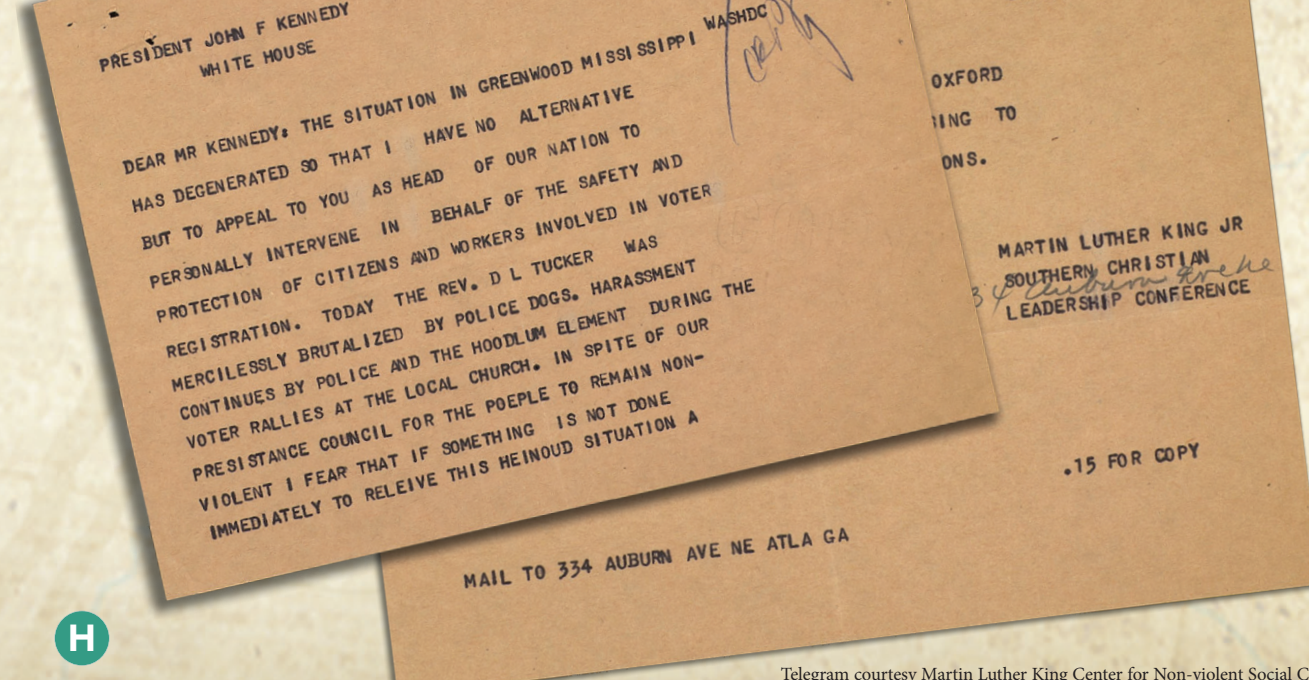 PRESIDENT JOHN F KENNEDY
WHITE HOUSE
WASHDC
DEAR MR KENNEDY: THE SITUATION IN GREENWOOD MISSISSIPPI
HAS DEGENERATED SO THAT I HAVE NO ALTERNATIVE
BUT TO APPEAL TO YOU AS HEAD OF OUR NATION TO
PERSONALLY INTERVENE IN BEHALF OF THE SAFETY AND
PROTECTION OF CITIZENS AND WORKERS INVOLVED IN VOTER
REGISTRATION. TODAY THE REV. D L TUCKER WAS
MERCILESSLY BRUTALIZED BY POLICE DOGS. HARASSMENT
CONTINUES BY POLICE AND THE HOODLUM ELEMENT DURING THE
VOTER RALLIES AT THE LOCAL CHURCH. IN SPITE OF OUR
PRESISTANCE COUNCIL FOR THE POEPLE TO REMAIN NON-
VIOLENT I FEAR THAT IF SOMETHING IS NOT DONE
IMMEDIATELY TO RELEIVE THIS HEINOUD SITUATION A
OXFORD
ING TO
ONS.
MARTIN LUTHER KING JR
SOUTHERN CHRISTIAN
34 Auburn Avene
LEADERSHIP CONFERENCE
.15 FOR COPY
MAIL TO 334 AUBURN AVE NE ATLA GA
H
Telegram courtesy Martin Luther King Center for Non-violent Social C